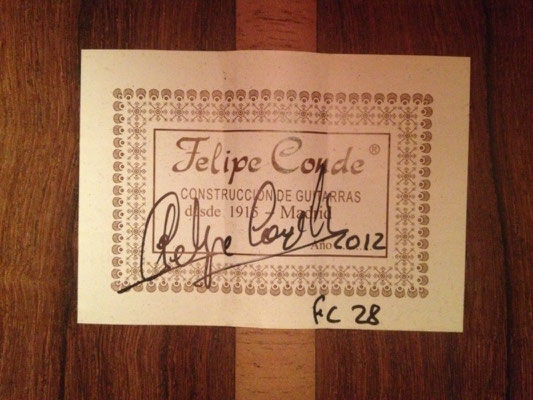 Felipe Conde®
CONSTRUCCION DE GUITARRAS
desde 1915 - Madrid
Felipe Conde
Año 2012
FC 28